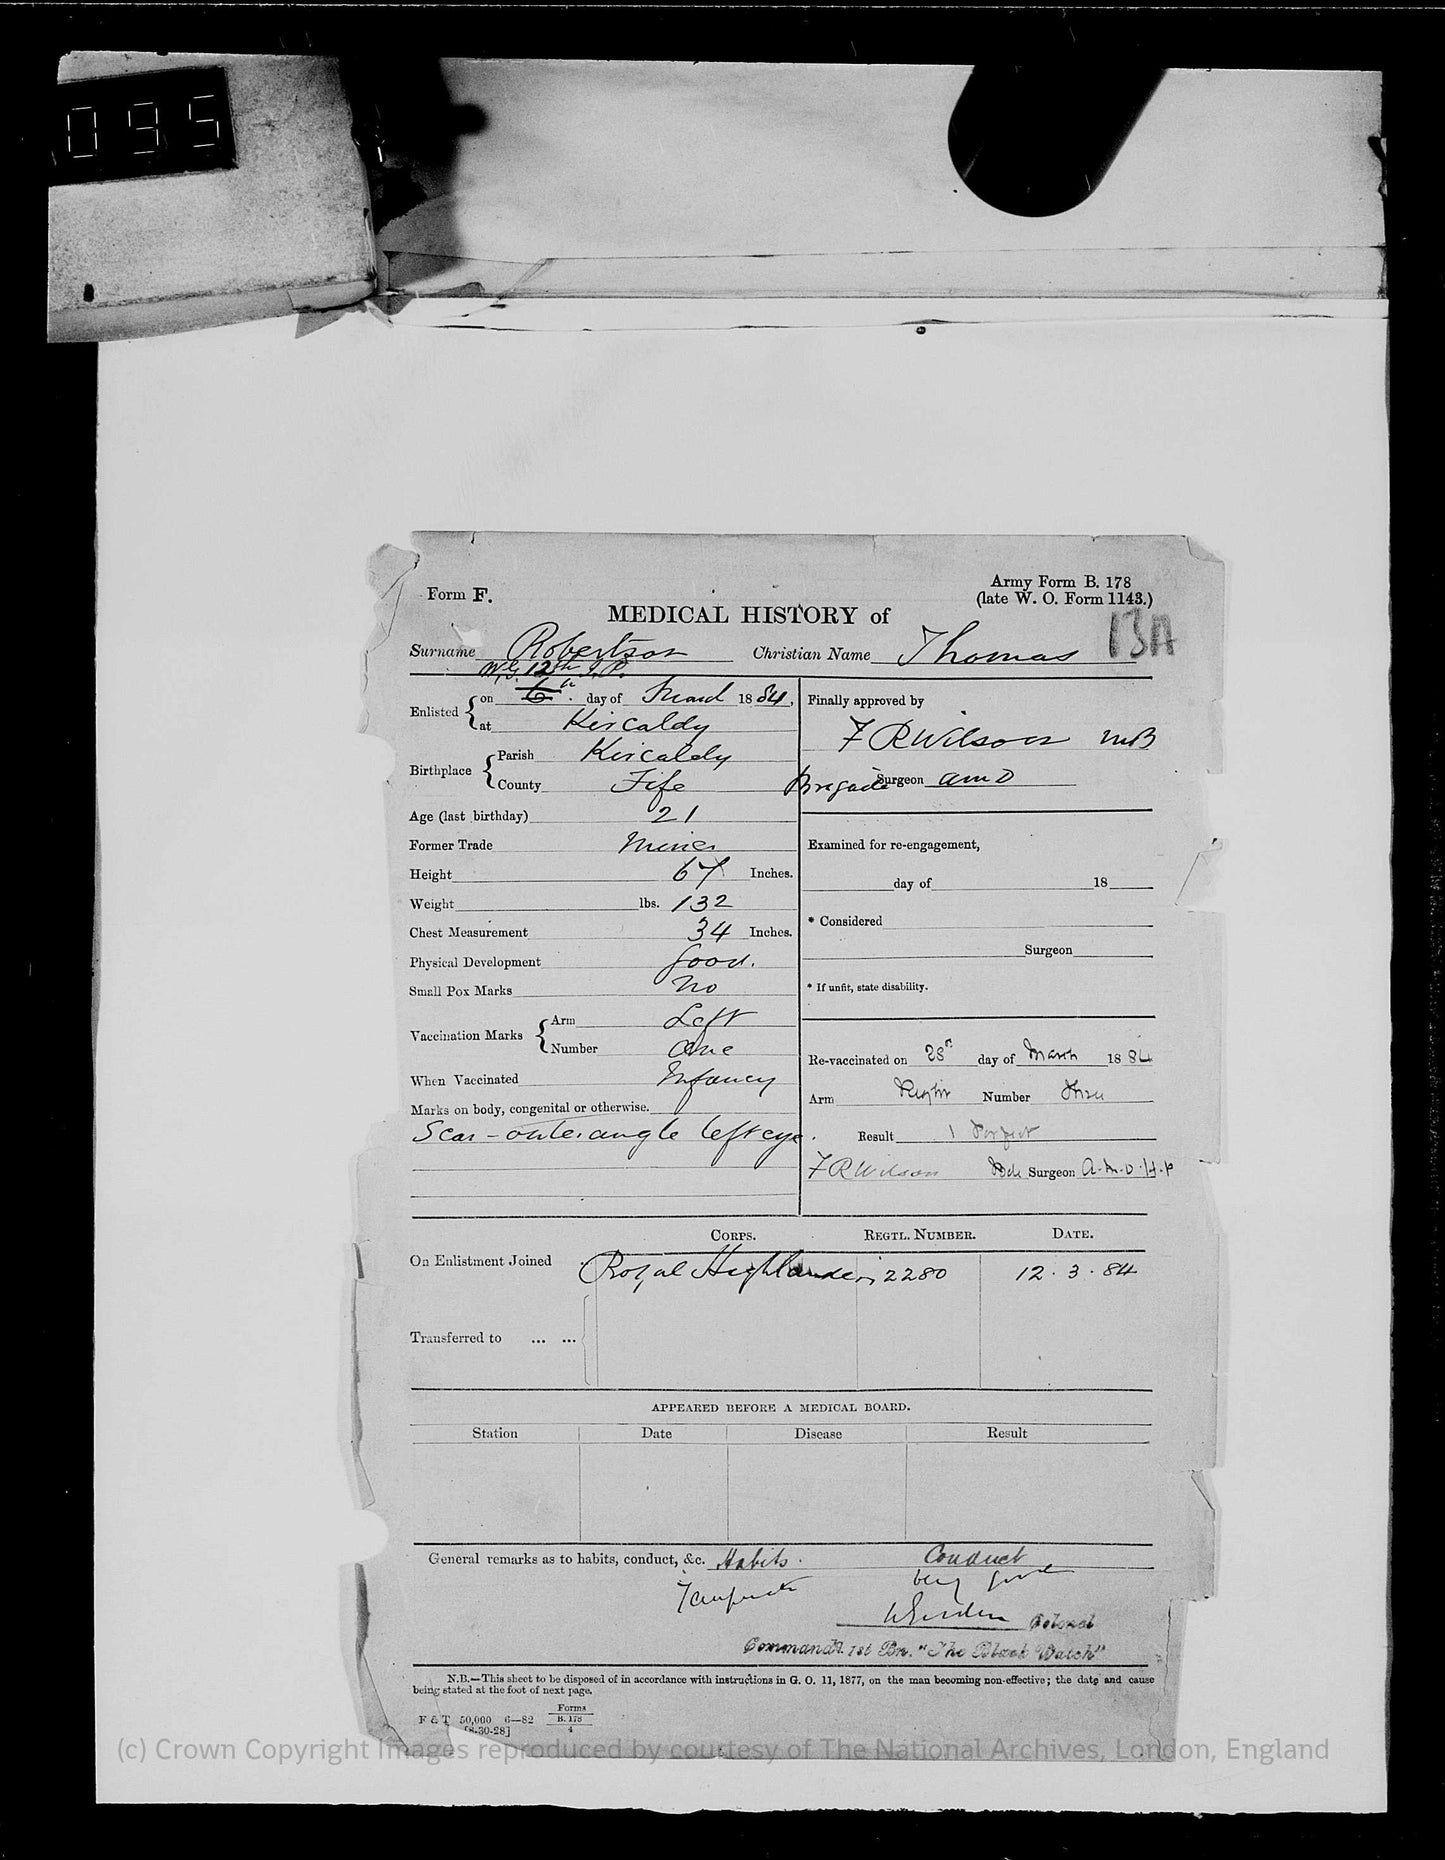 095
Form F.
Army Form B. 178
(late W. O. Form 1143.)
MEDICAL HISTORY of
13A
Surname Robertson Christian Name Thomas
12th
Enlisted on 6th day of March 1884,
at Kircaldy
Birthplace Parish Kircaldy
County Fife
Age (last birthday) 21
Former Trade Miner
Height 67 Inches.
Weight lbs. 132
Chest Measurement 34 Inches.
Physical Development Good.
Small Pox Marks No
Vaccination Marks Arm Left
Number One
When Vaccinated Infancy
Marks on body, congenital or otherwise.
Scar - outer angle left eye.
Finally approved by
F R Wilson MB
Brigade Surgeon AMD
Examined for re-engagement,
day of 18
* Considered
Surgeon
* If unfit, state disability.
Re-vaccinated on 28th day of March 1884
Arm Right Number Three
Result 1 Perfect
F R Wilson Bde Surgeon A.M.D. H.P
CORPS. REGTL. NUMBER. DATE.
On Enlistment Joined Royal Highlanders 2280 12.3.84
Transferred to ... ...
APPEARED BEFORE A MEDICAL BOARD.
Station Date Disease Result
General remarks as to habits, conduct, &c. Habits. Conduct
Temperate very good
Colonel
Commandg. 1st Bn. "The Black Watch"
N.B.—This sheet to be disposed of in accordance with instructions in G. O. 11, 1877, on the man becoming non-effective; the date and cause
being stated at the foot of next page.
F & T 50,000 6—82 Forms B. 178 4
[8-30-28]
(c) Crown Copyright Images reproduced by courtesy of The National Archives, London, England